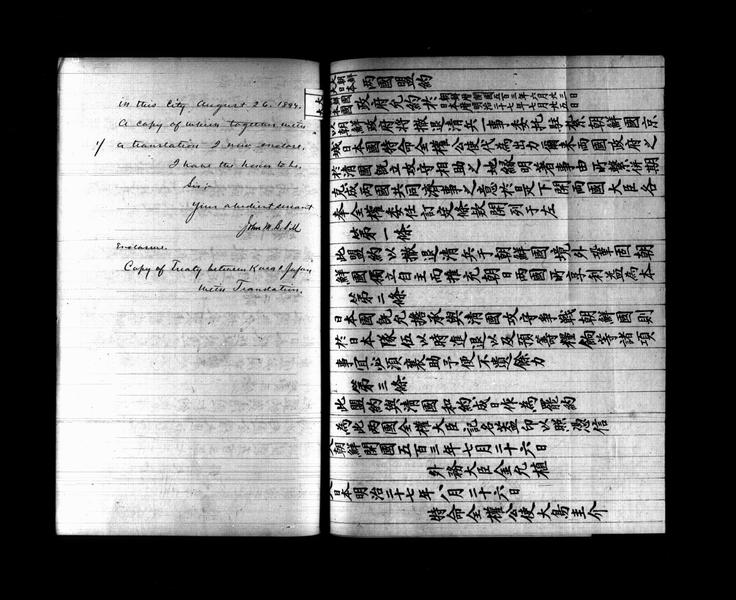 in this City August 26. 1894.
A copy of which together with
a translation I now enclose.
I have the honor to be,
Sir:
Your obedient servant
John M. B. Sill
Enclosure.
Copy of Treaty between Korea & Japan
with Translation.
大朝鮮
大日本
兩國盟約
政府允約於
朝鮮曆開國五百三年六月廿三日
日本曆明治二十七年七月廿五日
以朝鮮政府將撤退清兵一事委托駐紮朝鮮國京
城日本國特命全權公使代為力彌來兩國政府之
於清國既立攻守相助之地緣明著事由所繫併期
克成兩國共同濟事之意於是下開兩國大臣各
奉全權委任訂定條款開列于左
第一條
此盟約以撤退清兵于朝鮮國境外鞏固朝
鮮國獨立自主而推充朝日兩國所享利益為本
第二條
日本國既允擔承與清國攻守爭戰朝鮮國則
於日本隊伍以時進退以及預籌糧餉等諸項
事宜必須襄助予便不遺餘力
第三條
此盟約與清國和約成日作為罷約
為此兩國全權大臣記名蓋印以照憑信
大朝鮮開國五百三年七月二十六日
外務大臣金允植
大日本明治二十七年八月二十六日
特命全權公使大鳥圭介